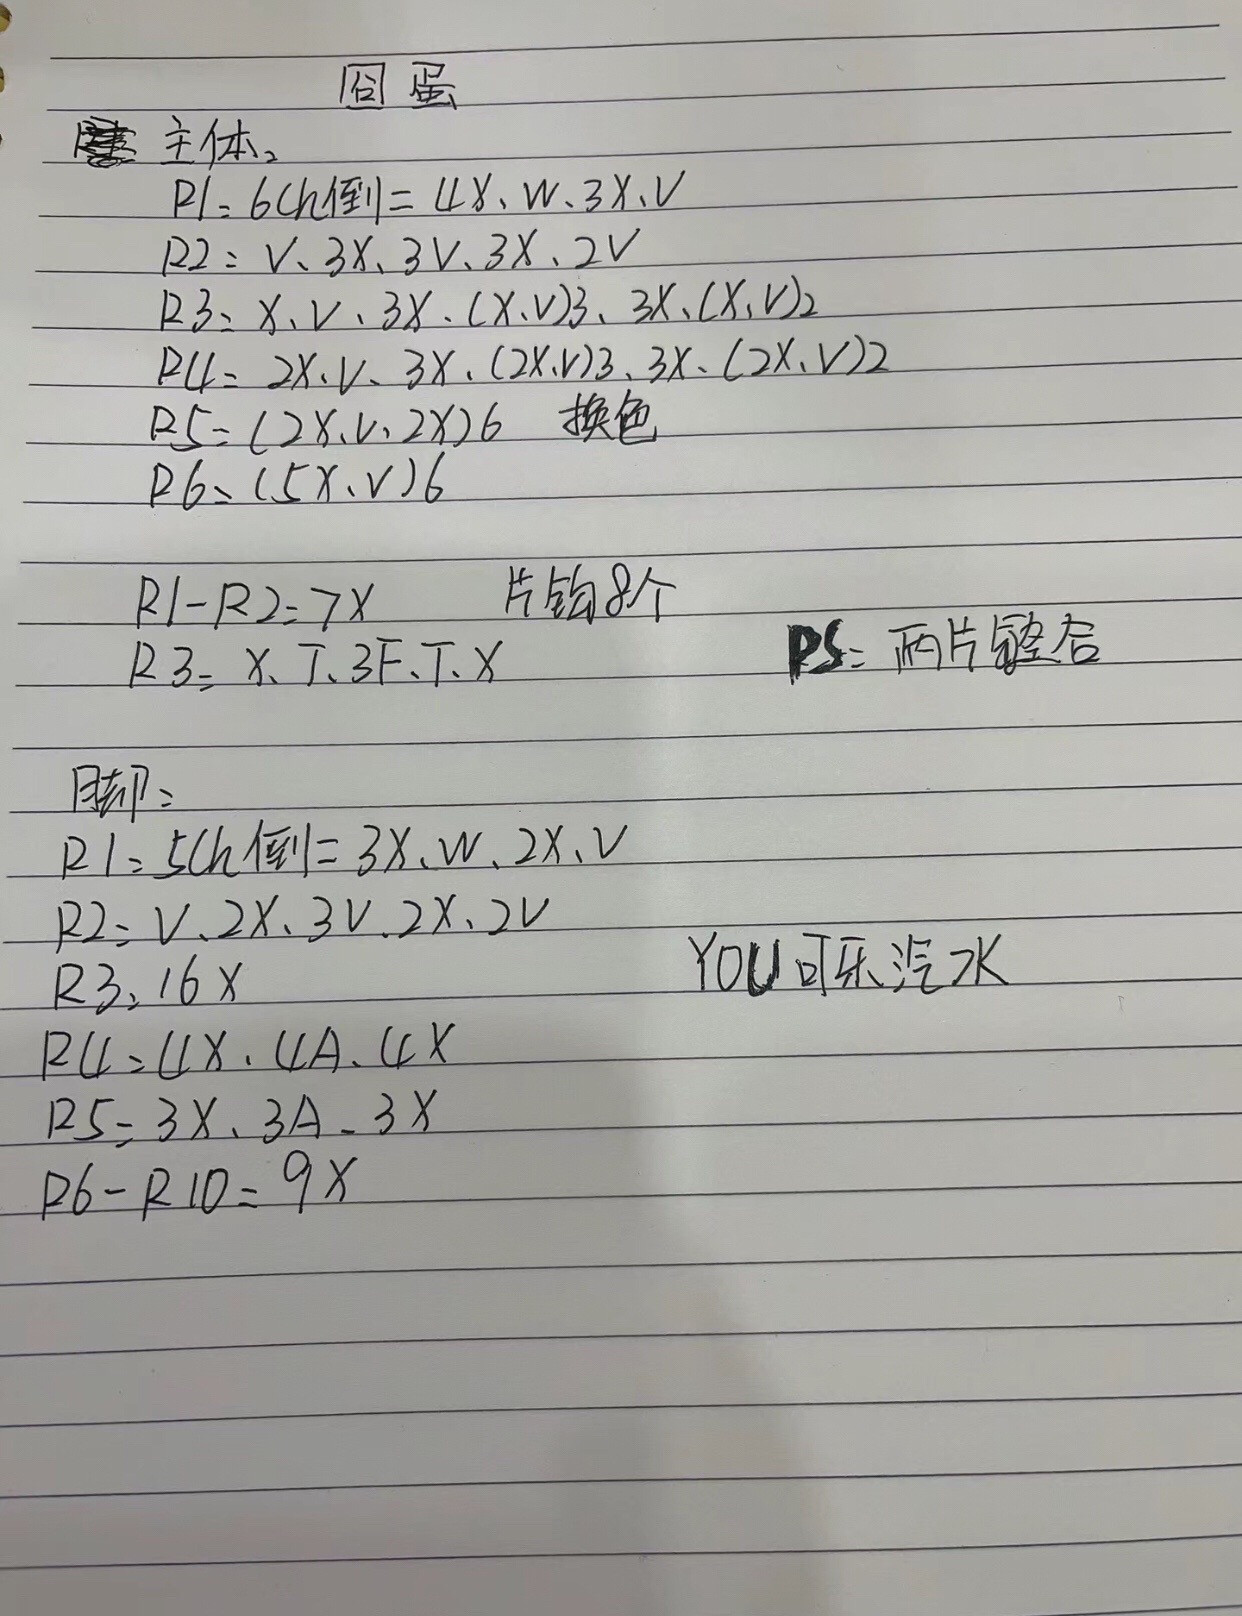 囧蛋
主体:
R1=6ch倒=4X、W、3X、V
R2=V、3X、3V、3X、2V
R3=X、V、3X、(X、V)3、3X、(X、V)2
R4=2X、V、3X、(2X、V)3、3X、(2X、V)2
R5=(2X、V、2X)6 换色
R6=(5X、V)6
R1-R2=7X 片钩8个
R3=X、T、3F、T、X
PS:两片缝合
脚:
R1=5ch倒=3X、W、2X、V
R2=V、2X、3V、2X、2V
R3=16X
YOU可乐汽水
R4=4X、4A、4X
R5=3X、3A、3X
R6-R10=9X